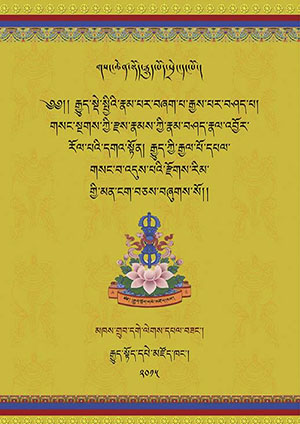 ༄༅།། རྒྱུད་སྡེ་སྤྱིའི་རྣམ་པར་བཞག་པ་རྒྱས་པར་བཤད་པ།
གསང་སྔགས་ཀྱི་རྫས་རྣམས་ཀྱི་རྣམ་བཤད་རྣལ་འབྱོར་
རོལ་པའི་དགའ་སྟོན། རྒྱུད་ཀྱི་རྒྱལ་པོ་དཔལ་
གསང་བ་འདུས་པའི་རྫོགས་རིམ་
གྱི་མན་ངག་བཅས་བཞུགས་སོ།།
མཁས་གྲུབ་དགེ་ལེགས་དཔལ་བཟང་།
རྒྱུད་སྟོད་དཔེ་མཛོད་ཁང་།
༢༠༡༥